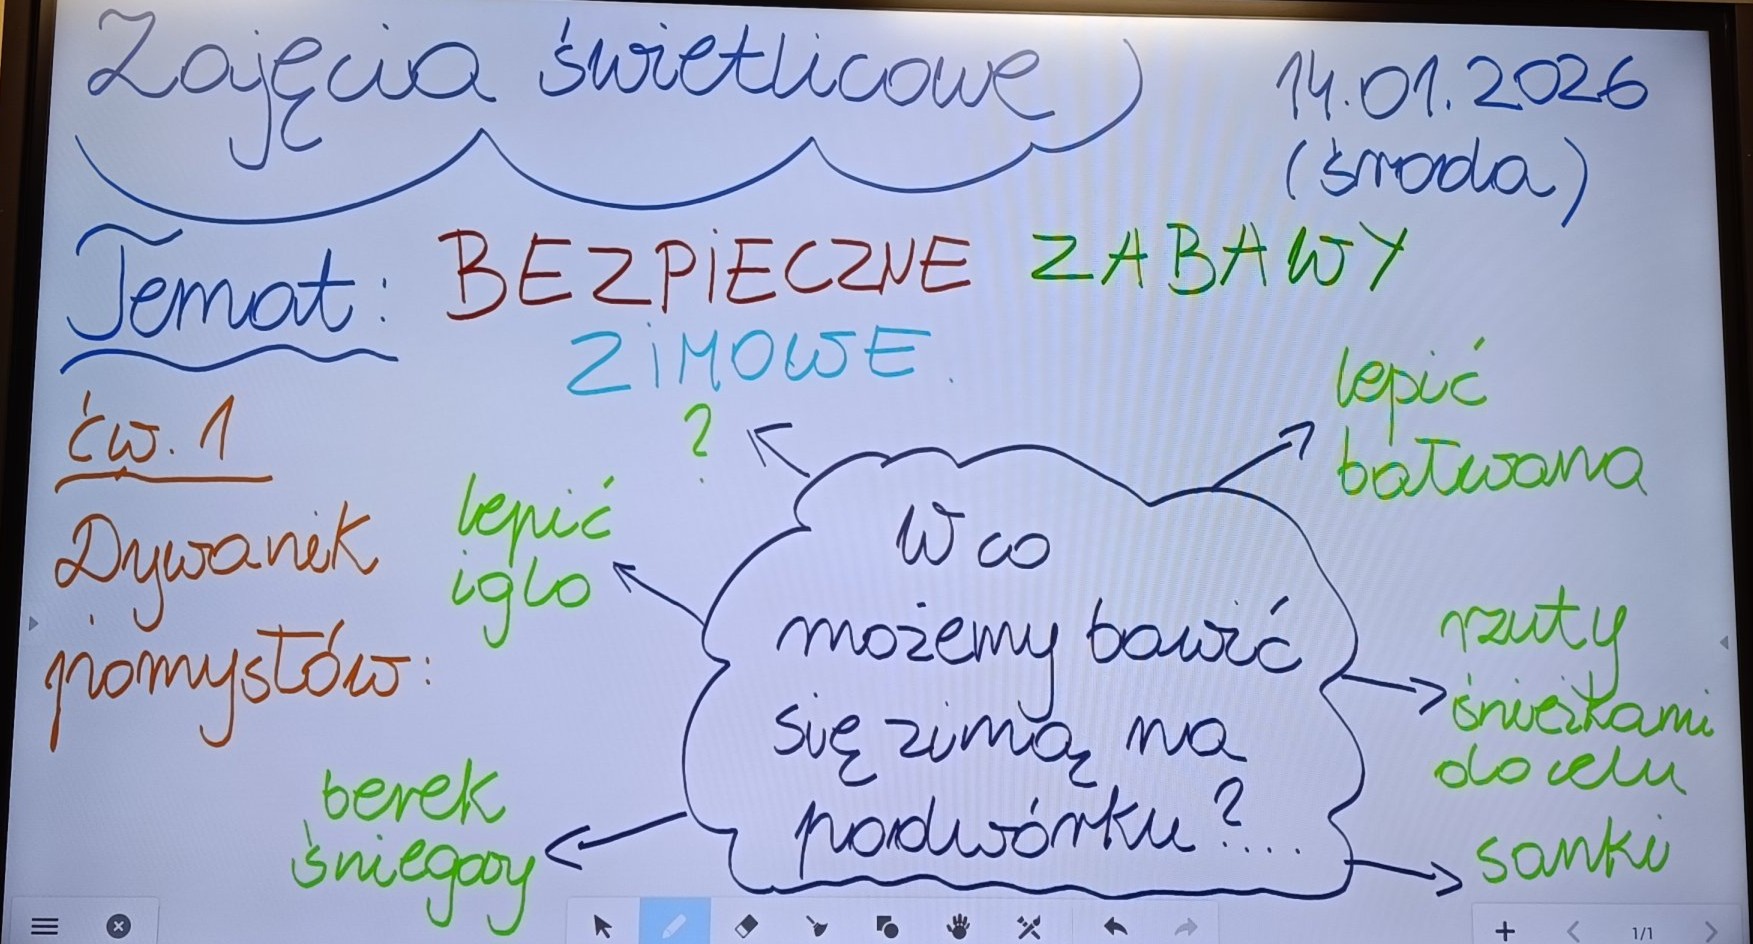 Zajęcia świetlicowe
14.01.2026
(środa)
Temat: BEZPIECZNE ZABAWY
ZIMOWE.
ćw. 1
Dywanik
pomysłów:
?
lepić
bałwana
lepić
iglo
W co
możemy bawić
się zimą na
podwórku?....
rzuty
śnieżkami
do celu
berek
śniegowy
sanki
1/1